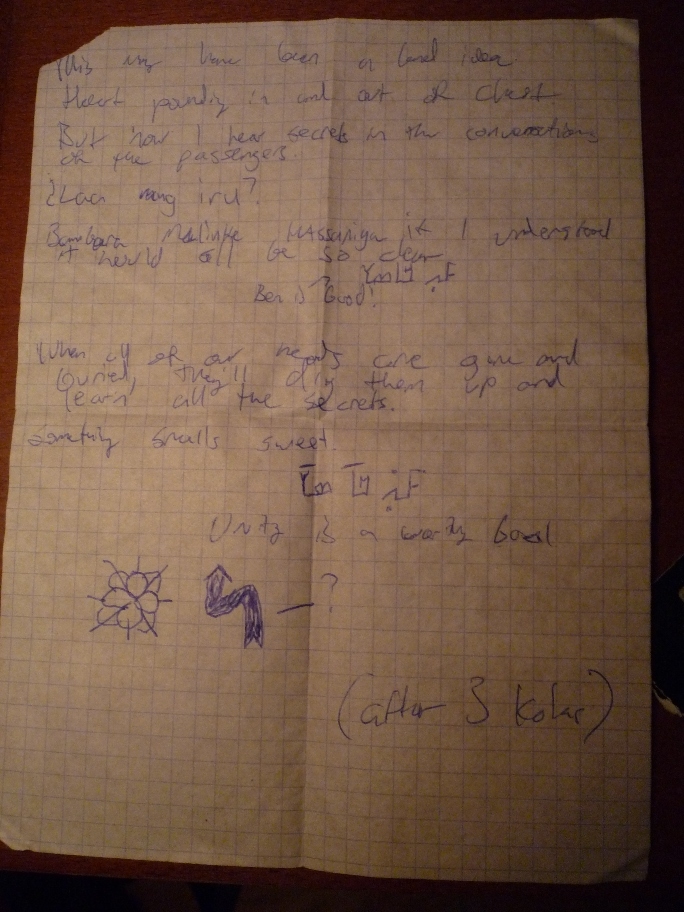 This may have been a bad idea.
Heart pounding in and out of chest.
But now I hear secrets in the conversations
of the passengers.
Bambara Malinke Hassaniya if I understood
it would all be so clear
Ben is Good!
When all of our heads are gone and
buried, they'll dig them up and
learn all the secrets.
Something smells sweet.
Unity is a worthy Goal
?
(after 3 Kolas)